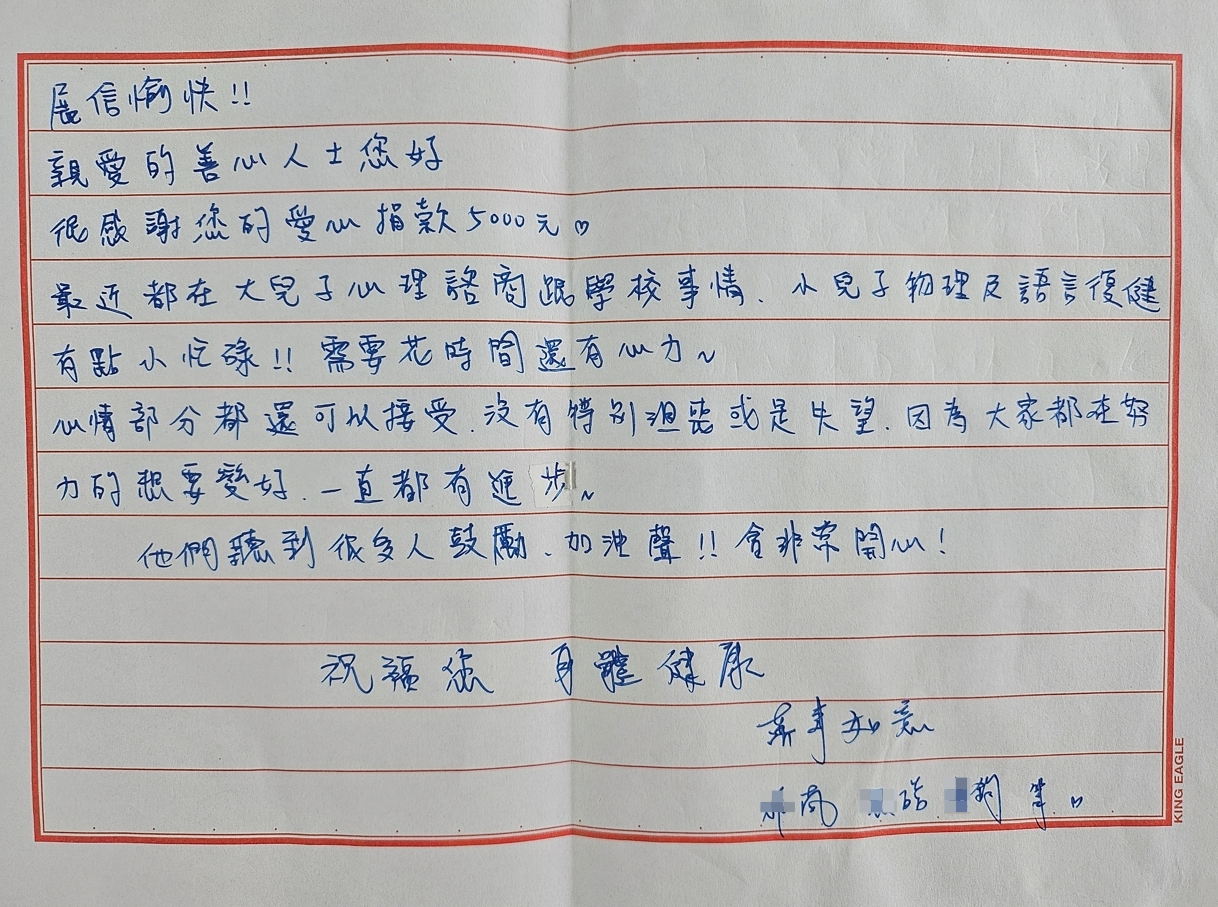 展信愉快!!
親愛的善心人士您好
很感謝您的愛心捐款5000元♡
最近都在大兒子心理諮商跟學校事情、小兒子物理及語言復健
有點小忙碌!! 需要花時間還有心力~
心情部分都還可以接受.沒有特別沮喪或是失望.因為大家都在努
力的想要變好.一直都有進步~
他們聽到很多人鼓勵、加油聲!!會非常開心!
祝福您 身體健康
萬事如意
筆
KING EAGLE